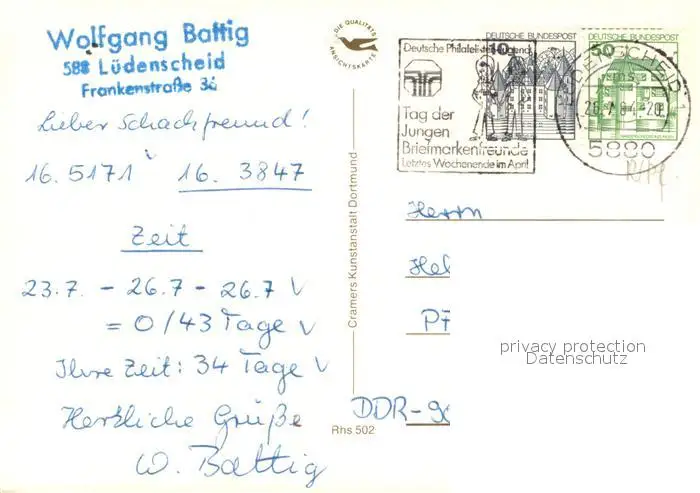 Wolfgang Battig
588 Lüdenscheid
Frankenstraße 36
Lieber Schachfreund!
16.5171 16. 3847
Zeit
23.7. - 26.7 - 26.7 V
= 0/43 Tage V
Ihre Zeit: 34 Tage V
Herzliche Grüße
W. Battig
DIE QUALITÄTS
ANSICHTSKARTE
Cramers Kunstanstalt Dortmund
Rhs 502
DEUTSCHE BUNDESPOST
DEUTSCHE BUNDESPOST
50
Deutsche Philatelisten-Jugend
Tag der
Jungen
Briefmarkenfreunde
Letztes Wochenende im April
5880
Herrn
Hel
DDR-90
privacy protection
Datenschutz